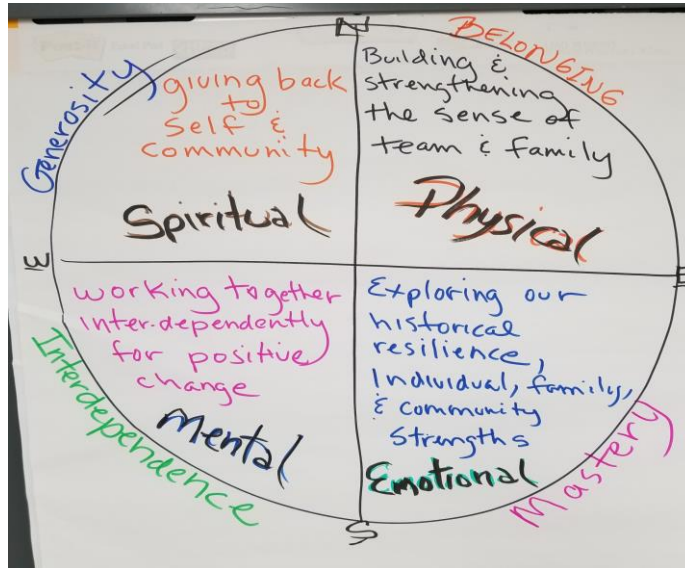 N
BELONGING
Generosity
giving back
to
self &
community
Spiritual
Building &
strengthening
the sense of
team & family
Physical
W
E
working together
inter-dependently
for positive
change
Mental
Interdependence
Exploring our
historical
resilience,
Individual, family,
& community
Strengths
Emotional
Mastery
S